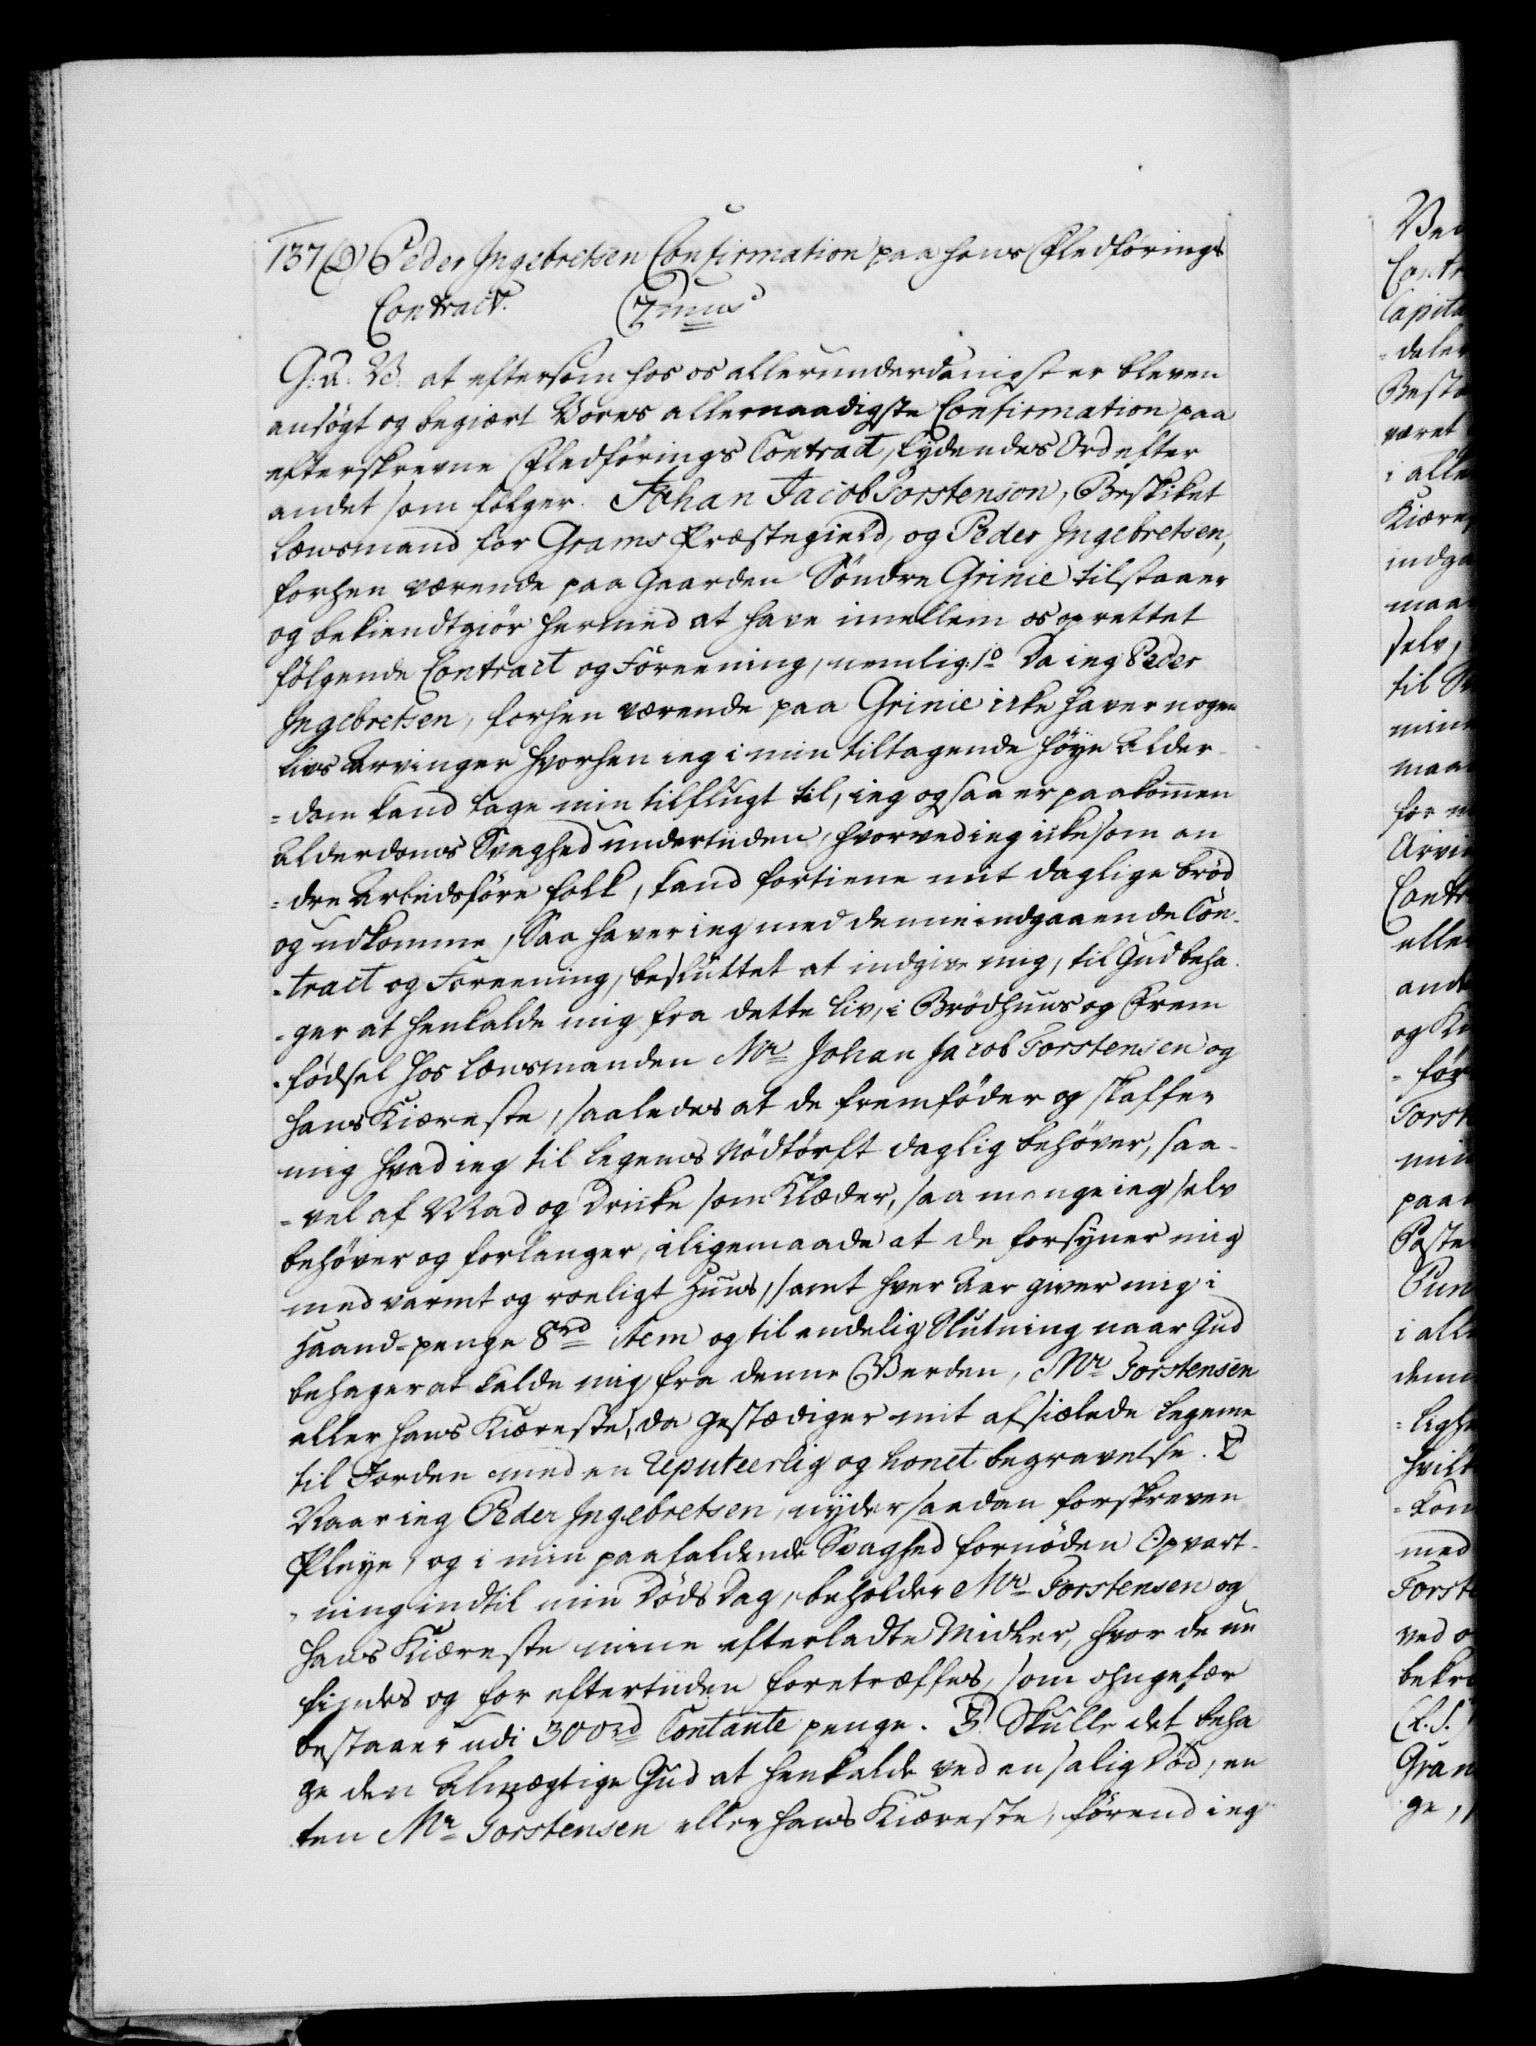 137 (D) Peder Ingebretsen Confirmation paa hans Fledførings
Contract.
G: a. V. at eftersom hos os allerunderdanigst er bleven
ansøgt og begiært Vores allernaadigste Confirmation paa
efterskrevne Fledførings Contract, lydendes Ord efter
andet som følger. Johan Jacob Torstenson, Beskiket
Lænsmand for Grams Præstegield, og Peder Ingebretsen,
forhen værende paa Gaarden Søndre Grinie tilstaaer
og bekiendtgiør hermed at have imellem os oprettet
følgende Contract og Foreening, nemlig: 1o Da ieg Peder
Ingebretsen, forhen værende paa Grinie icke haver nogen
Livs Arvinger hvorhen ieg i min tiltagende høye Alder-
=dom kand tage min tilflugt til, ieg ogsaa er paakommen
Alderdoms Svaghed undertiiden, hvorved ieg icke som an
=dre Arbeidsføre folk, kand fortiene mit daglige brød
og udkomme, Saa haver ieg med denne indgaaende Con-
=tract og Foreening, besluttet at indgive mig, til Gud beha-
=ger at henkalde mig fra dette liv, i Brødhuus og Frem
=fødsel hos Lænsmanden Mr Johan Jacob Torstensen og
hans Kiæreste, saaledes at de fremføder og skaffer
mig hvad ieg til legems Nødtørft daglig behøver, saa-
=vel af Mad og Dricke som Klæder, saa mange ieg selv
behøver og forlanger, iligemaade at de forsyner mig
med varmt og roeligt Huus, samt hver Aar giver mig i
Haand=penge 8rd item og til endelig Slutning naar Gud
behager at kalde mig fra denne Verden, Mr Torstensen
eller hans Kiæreste, da gestædiger mit afsiælede legeme
til Jorden med en reputeerlig og honet begravelse. 2
Naar ieg Peder Ingebretsen, nyder saadan forskreven
Pleye, og i min paafaldende Svaghed fornøden Opvart-
=ning indtil min Døds Dag, beholder Mr Torstensen og
hans Kiæreste mine efterladte Midler, hvor de nu
findes og for eftertiiden foretræffes, som ohngefær
bestaaer udi 300rd Contante penge. 3. Skulle det beha
ge den Almægtige Gud at henkalde ved en salig Død, en
ten Mr Torstensen eller hans Kiæreste, førend ieg